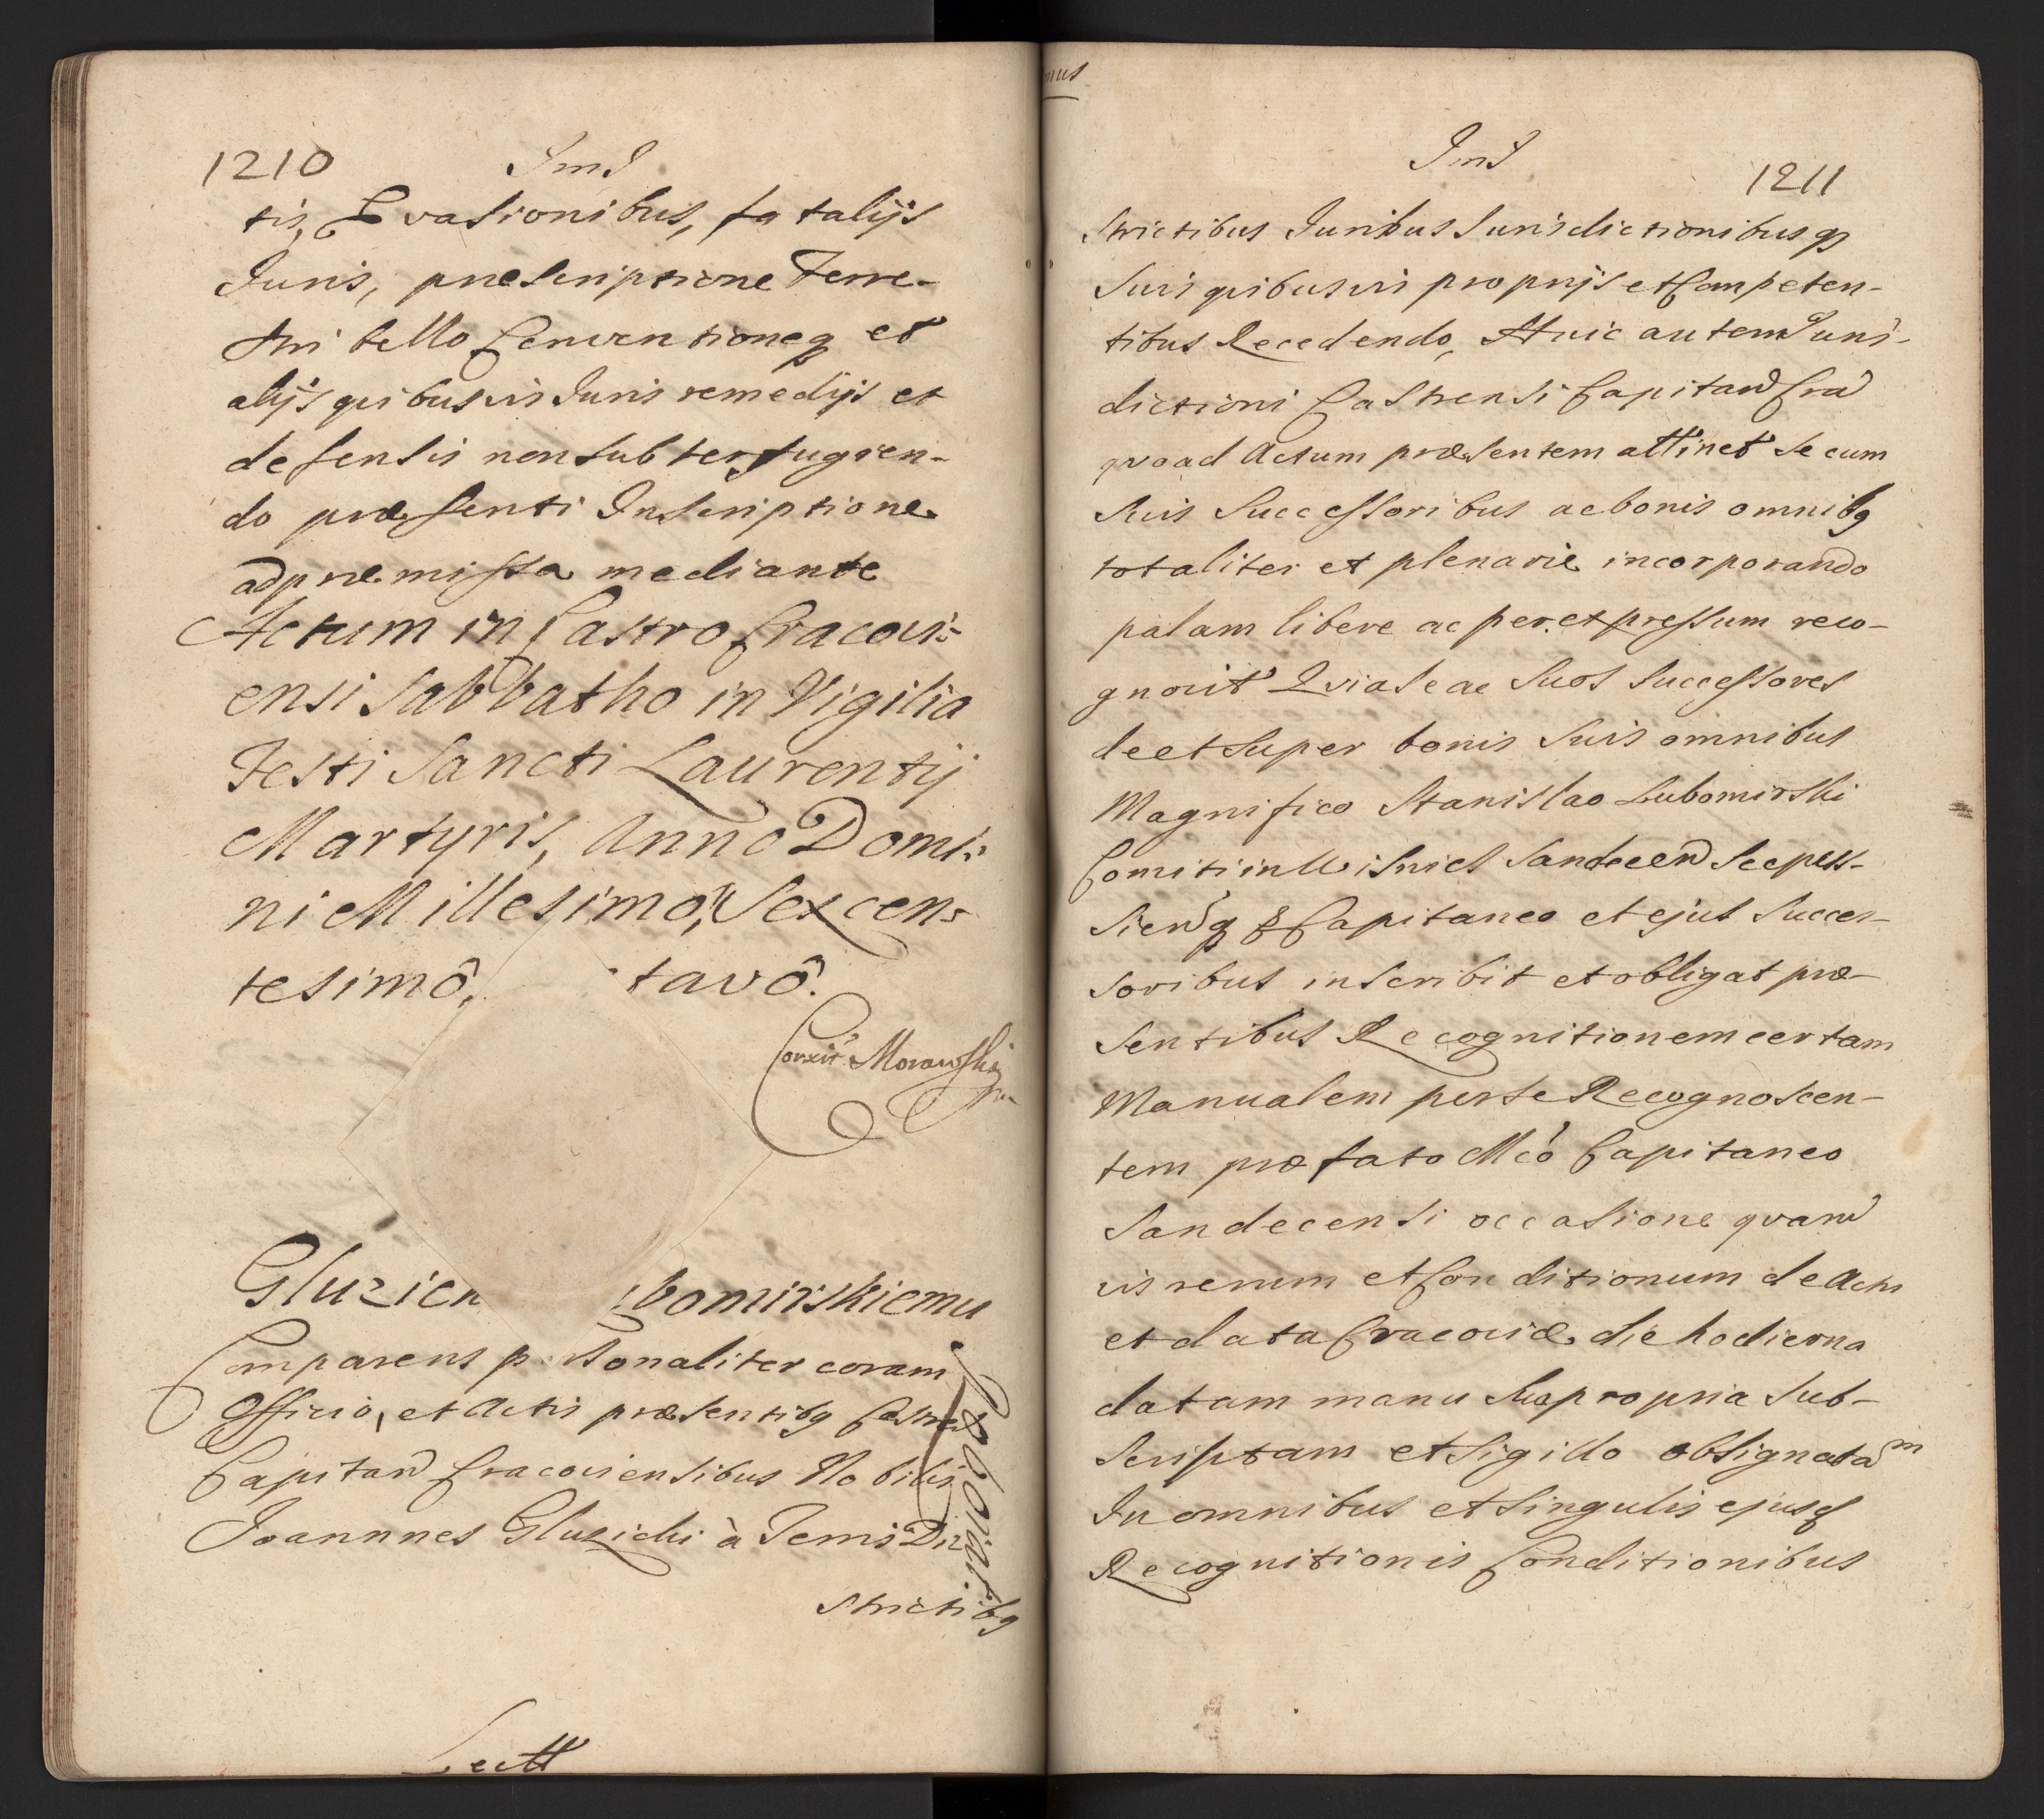 1210
Ind
tis, Evasionibus, fatalijs
Juris, præscriptione Terre-
stri bello Conventioneq et
alijs quibusvis Juris remedijs et
defensis non subterfugien-
do præsenti Inscriptione
ad præmissa mediante
Actum in Castro Cracovi-
ensi Sabbatho in Vigilia
Festi Sancti Laurentij
Martyris, Anno Domi-
ni Millesimo, Sexcen-
tesimô, tavô.
Conxit Morawski
Gluzick bomirskiemu
Comparens personaliter coram
Officio, et Actis præsentibq Castren
Capitan Cracoviensibus Nobilis
Joannnes Gluzicki à Terris Di
strictibq
Roboravit
Lectt
mus
Ind
1211
Strictibus Juribus Jurisdictionibusq
Suis quibusvis proprijs et Competen-
tibus Recedendo, Huic autem Juris-
dictioni Castrensi Capitan Cra
quoad Actum præsentem attinet Se cum
Suis Successoribus ac bonis omnibq
totaliter et plenarie incorporando
palam libere ac per expressum reco-
gnovit Quia Se ac Suos Successores
de et Super bonis Suis omnibus
Magnifico Stanislao Lubomirski
Comiti in Wisnicz Sandecen Scepus-
sienq Capitaneo et ejus Succes-
soribus inscribit et obligat præ-
sentibus Recognitionem certam
Manualem per se Recognoscen-
tem præfato Mcó Capitaneo
Sandecensi occasione quarum
vis rerum et Conditionum de Actu
et data Cracoviæ die hodierna
datam manu Sua propria Sub-
scriptam et Sigillo obsignatam
In omnibus et Singulis ejusq
Recognitionis Conditionibus